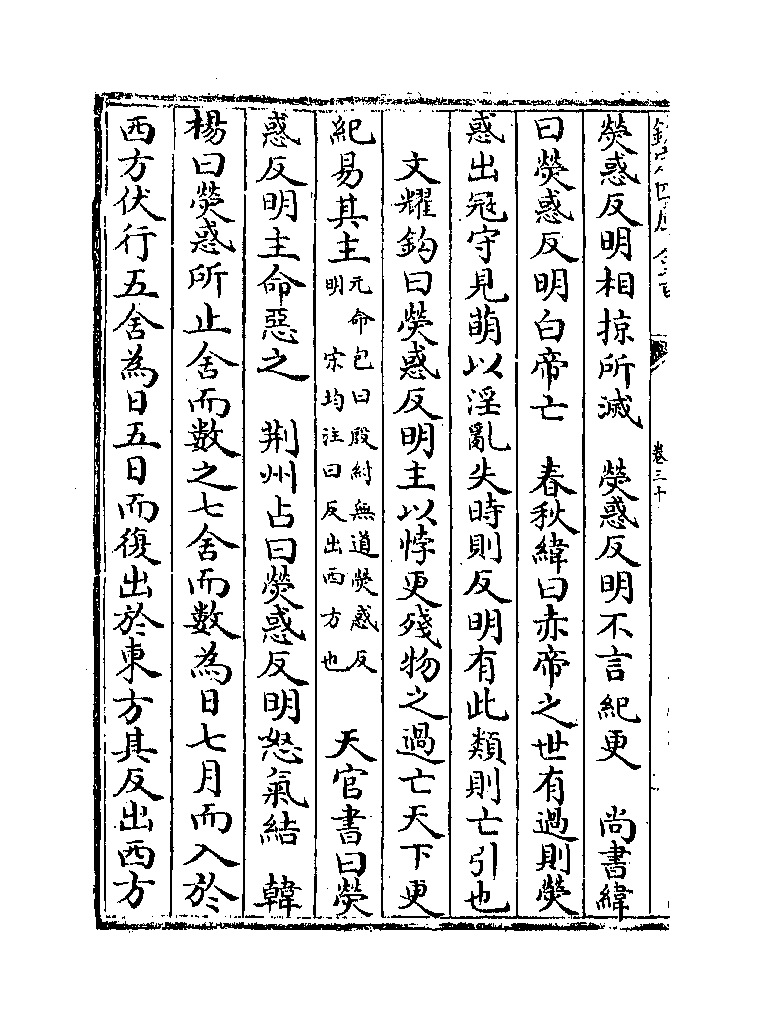 卷三十
熒惑反明相掠所滅　熒惑反明不言紀更　尚書緯
曰熒惑反明白帝亡　春秋緯曰赤帝之世有過則熒
惑出冠守見萌以淫亂失時則反明有此類則亡引也
文耀鈎曰熒惑反明主以悖更殘物之過亡天下更
紀易其主元命包曰殷紂無道熒惑反明　宋均注曰反出西方也　天官書曰熒
惑反明主命惡之　荆州占曰熒惑反明怒氣結　韓
楊曰熒惑所止舍而數之七舍而數為日七月而入於
西方伏行五舍為日五日而復出於東方其反出西方